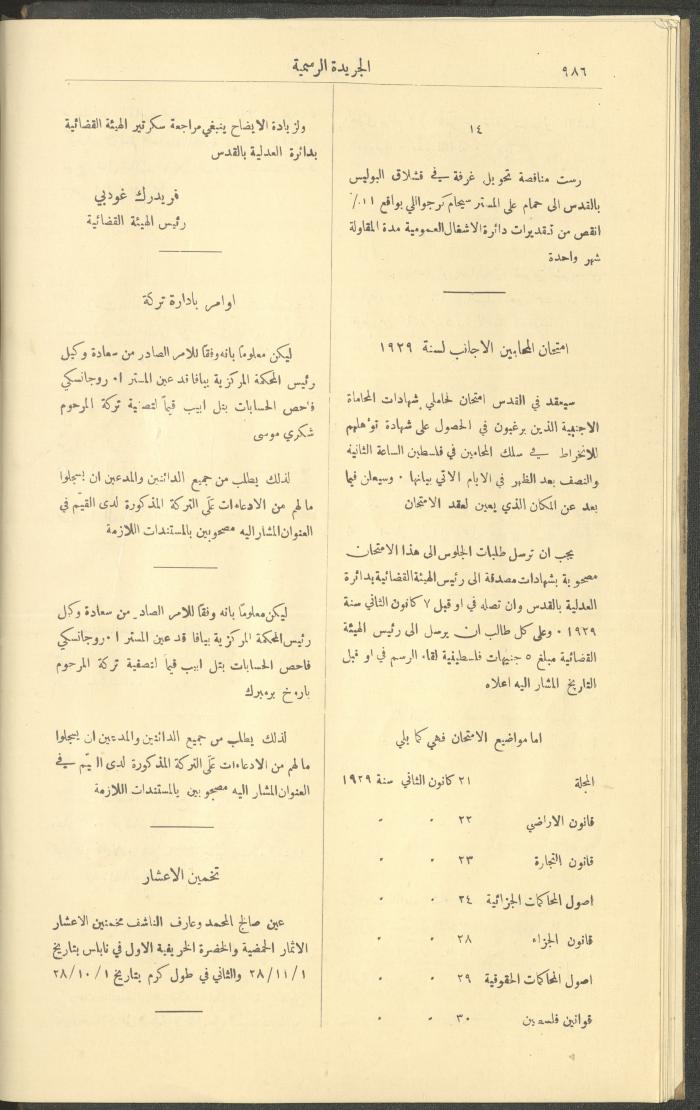 ٩٨٦
الجريدة الرسمية
١٤
رست مناقصة تحويل غرفة في قشلاق البوليس
بالقدس الى حمام على المستر سيحام كرجوالي بواقع ١١٪
انقص من تقديرات دائرة الاشغال العمومية مدة المقاولة
شهر واحدة
امتحان المحامين الاجانب لسنة ١٩٢٩
سيعقد في القدس امتحان لحاملي شهادات المحاماة
الاجنبية الذين يرغبون في الحصول على شهادة تؤهلهم
للانخراط في سلك المحامين في فلسطين الساعة الثانية
والنصف بعد الظهر في الايام الاتي بيانها ٠ وسيعلن فيما
بعد عن المكان الذي يعين لعقد الامتحان
يجب ان ترسل طلبات الجلوس الى هذا الامتحان
مصحوبة بشهادات مصدقة الى رئيس الهيئة القضائية بدائرة
العدلية بالقدس وان تصله في او قبل ٧ كانون الثاني سنة
١٩٢٩ ٠ وعلى كل طالب ان يرسل الى رئيس الهيئة
القضائية مبلغ ٥ جنيهات فلسطينية لقاء الرسم في او قبل
التاريخ المشار اليه اعلاه
اما مواضيع الامتحان فهي كما يلي
المجلة ٢١ كانون الثاني سنة ١٩٢٩
قانون الاراضي ٢٢ " "
قانون التجارة ٢٣ " "
اصول المحاكمات الجزائية ٢٤ " "
قانون الجزاء ٢٨ " "
اصول المحاكمات الحقوقية ٢٩ " "
قوانين فلسطين ٣٠ " "
ولزيادة الايضاح ينبغي مراجعة سكرتير الهيئة القضائية
بدائرة العدلية بالقدس
فريدرك غودبي
رئيس الهيئة القضائية
اوامر بادارة تركة
ليكن معلومًا بانه وفقًا للامر الصادر من سعادة وكيل
رئيس المحكمة المركزية بيافا قد عين المستر ا٠ روجانسكي
فاحص الحسابات بتل ابيب قيمًا لتصفية تركة المرحوم
شكري موسى
لذلك يطلب من جميع الدائنين والمدعين ان يسجلوا
ما لهم من الادعاءات على التركة المذكورة لدى القيّم في
العنوان المشار اليه مصحوبين بالمستندات اللازمة
ليكن معلومًا بانه وفقًا للامر الصادر من سعادة وكيل
رئيس المحكمة المركزية بيافا قد عين المستر ا٠ روجانسكي
فاحص الحسابات بتل ابيب قيمًا لتصفية تركة المرحوم
باروخ برمبرك
لذلك يطلب من جميع الدائنين والمدعين ان يسجلوا
ما لهم من الادعاءات على التركة المذكورة لدى القيّم في
العنوان المشار اليه مصحوبين بالمستندات اللازمة
تخمين الاعشار
عين صالح المحمد وعارف الناشف مخمنين الاعشار
الاثمار الحمضية والخضرة الخريفية الاول في نابلس بتاريخ
٢٨/١١/١ والثاني في طول كرم بتاريخ ٢٨/١٠/١